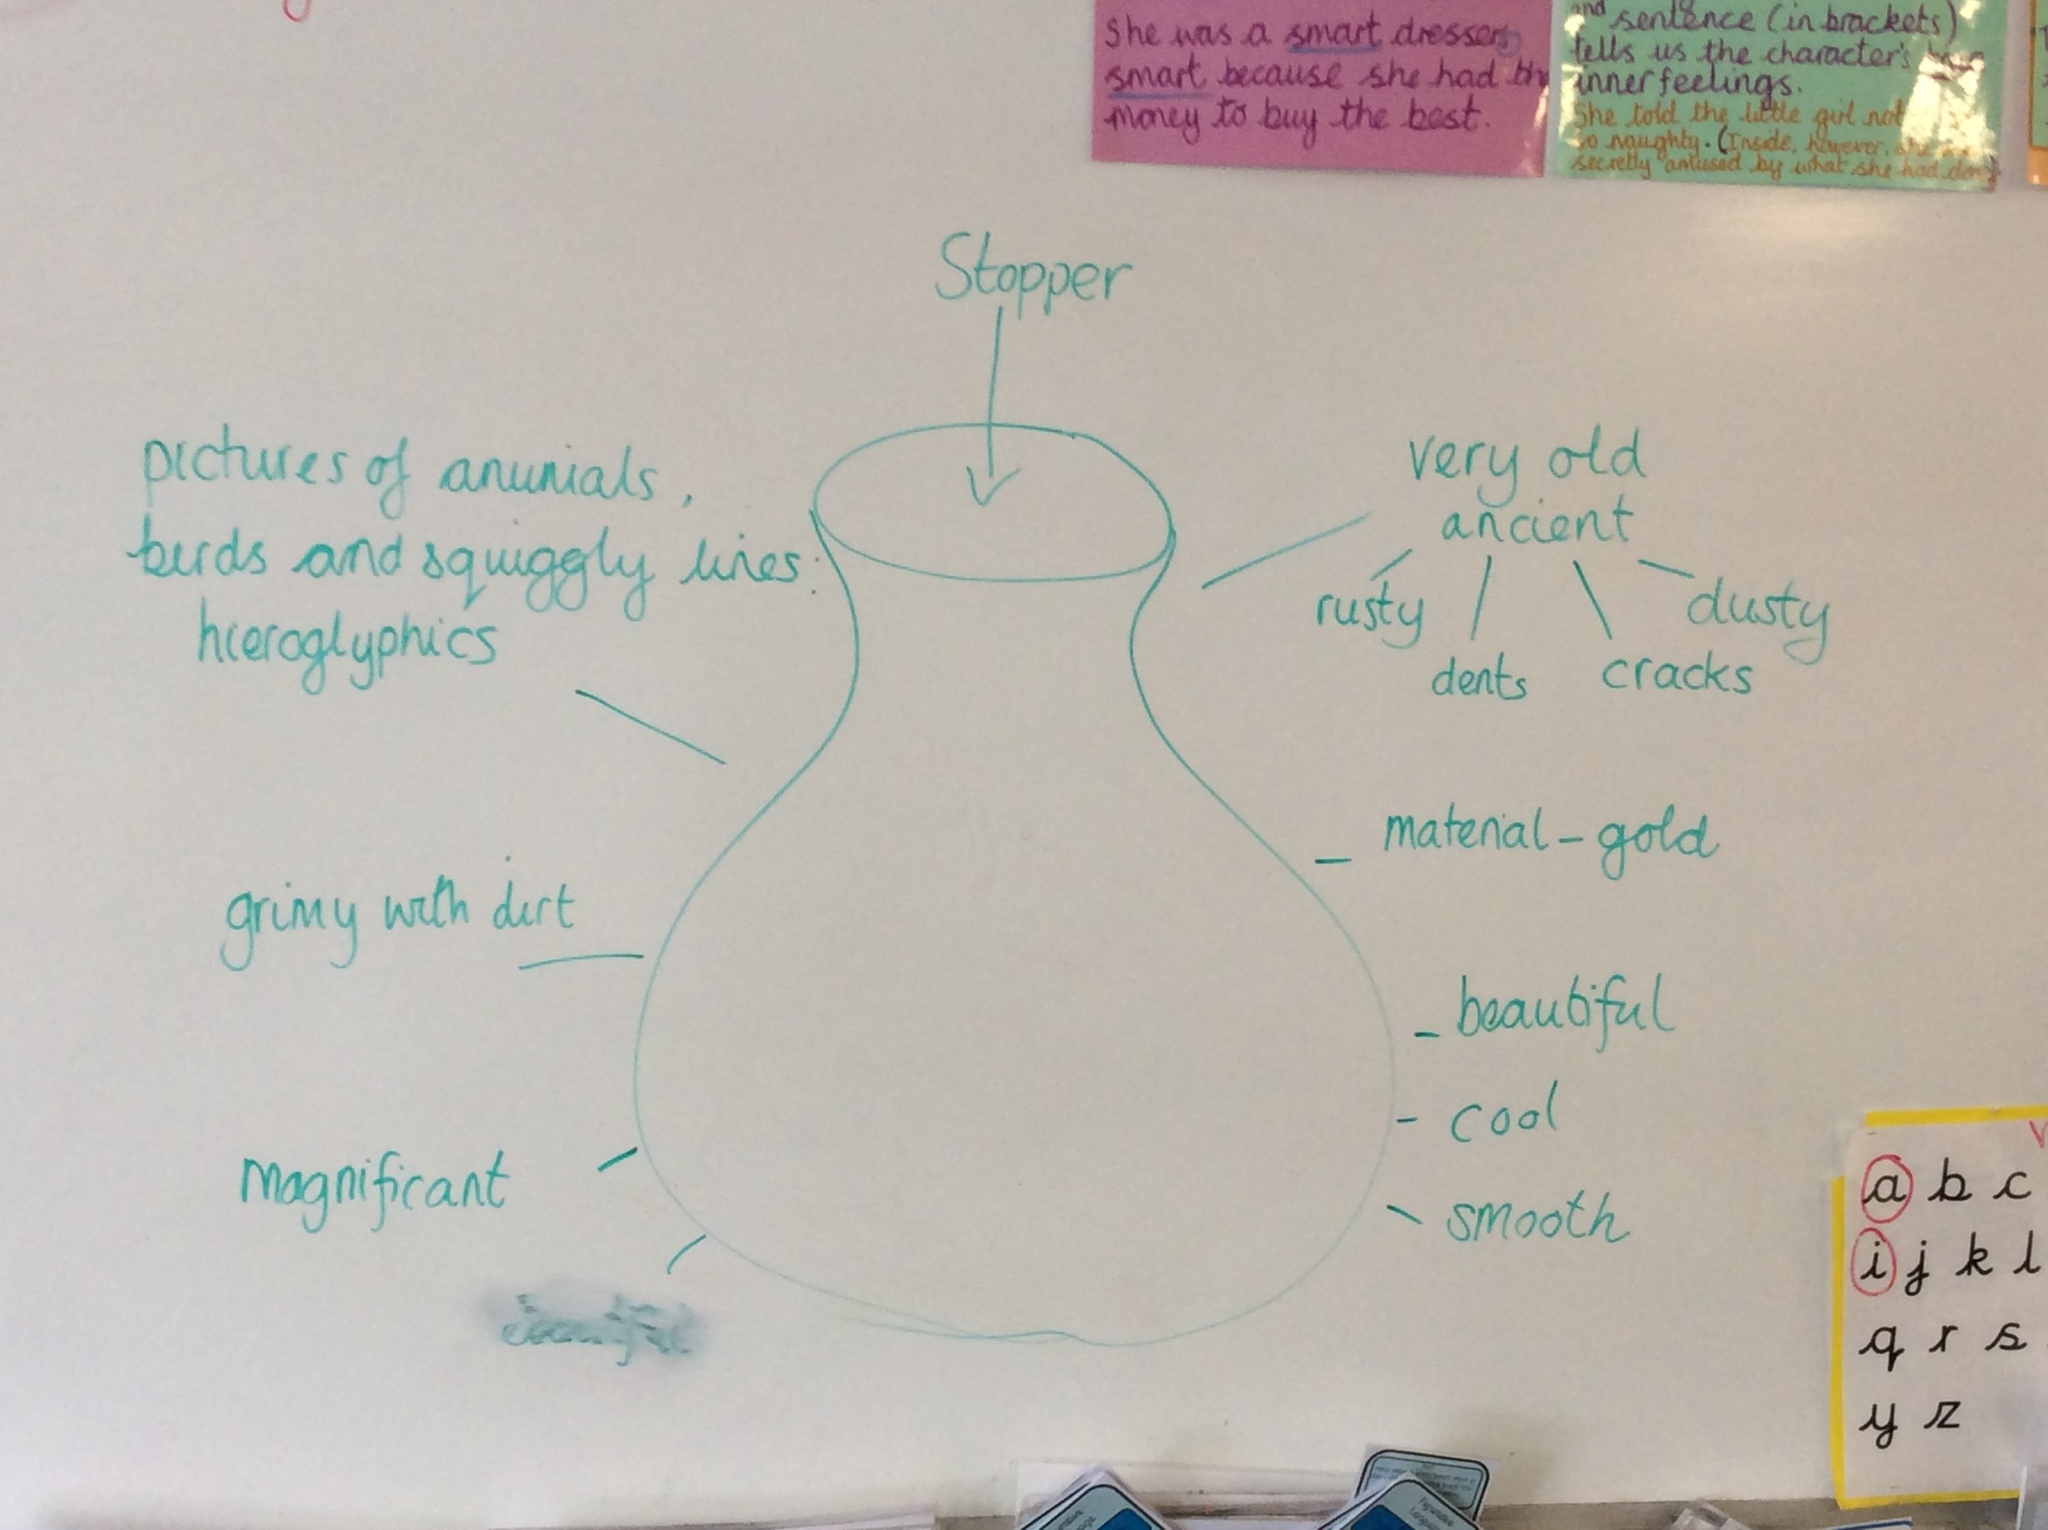 She was a smart dresser,
smart because she had the
money to buy the best.
and sentence (in brackets)
tells us the character's
inner feelings.
She told the little girl not
so naughty. (Inside, however, she
secretly amused by what she had done)
Stopper
pictures of anunials,
birds and squiggly lines:
hieroglyphics
very old
ancient
rusty
dents
cracks
dusty
material - gold
grimy with dirt
- beautiful
- cool
magnificant
smooth
a b c
i j k l
q r s
y z